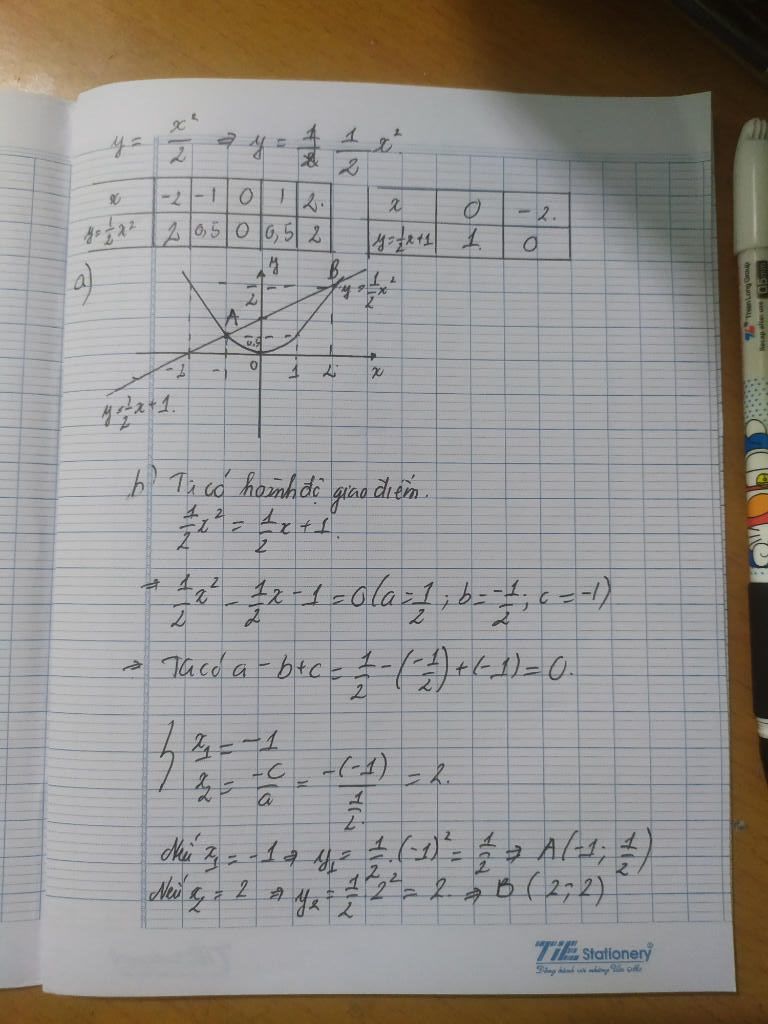 y = x²/2 ⇒ y = 1/2 x²
x -2 -1 0 1 2
y=1/2x² 2 0,5 0 0,5 2
x 0 -2
y=1/2x+1 1 0
a)
y
B
2
y=1/2x²
A
0,5
-2 -1 0 1 2 x
y=1/2x+1
b) Ta có hoành độ giao điểm.
1/2x² = 1/2x + 1
⇒ 1/2x² - 1/2x - 1 = 0 (a = 1/2; b = -1/2; c = -1)
⇒ Ta có a - b + c = 1/2 - (-1/2) + (-1) = 0.
x₁ = -1
x₂ = -c/a = -(-1)/(1/2) = 2.
Nếu x₁ = -1 ⇒ y₁ = 1/2.(-1)² = 1/2 ⇒ A(-1; 1/2)
Nếu x₂ = 2 ⇒ y₂ = 1/2 2² = 2. ⇒ B (2; 2)
TiE Stationery
Đồng hành với những Ước Mơ
Thien Long Group